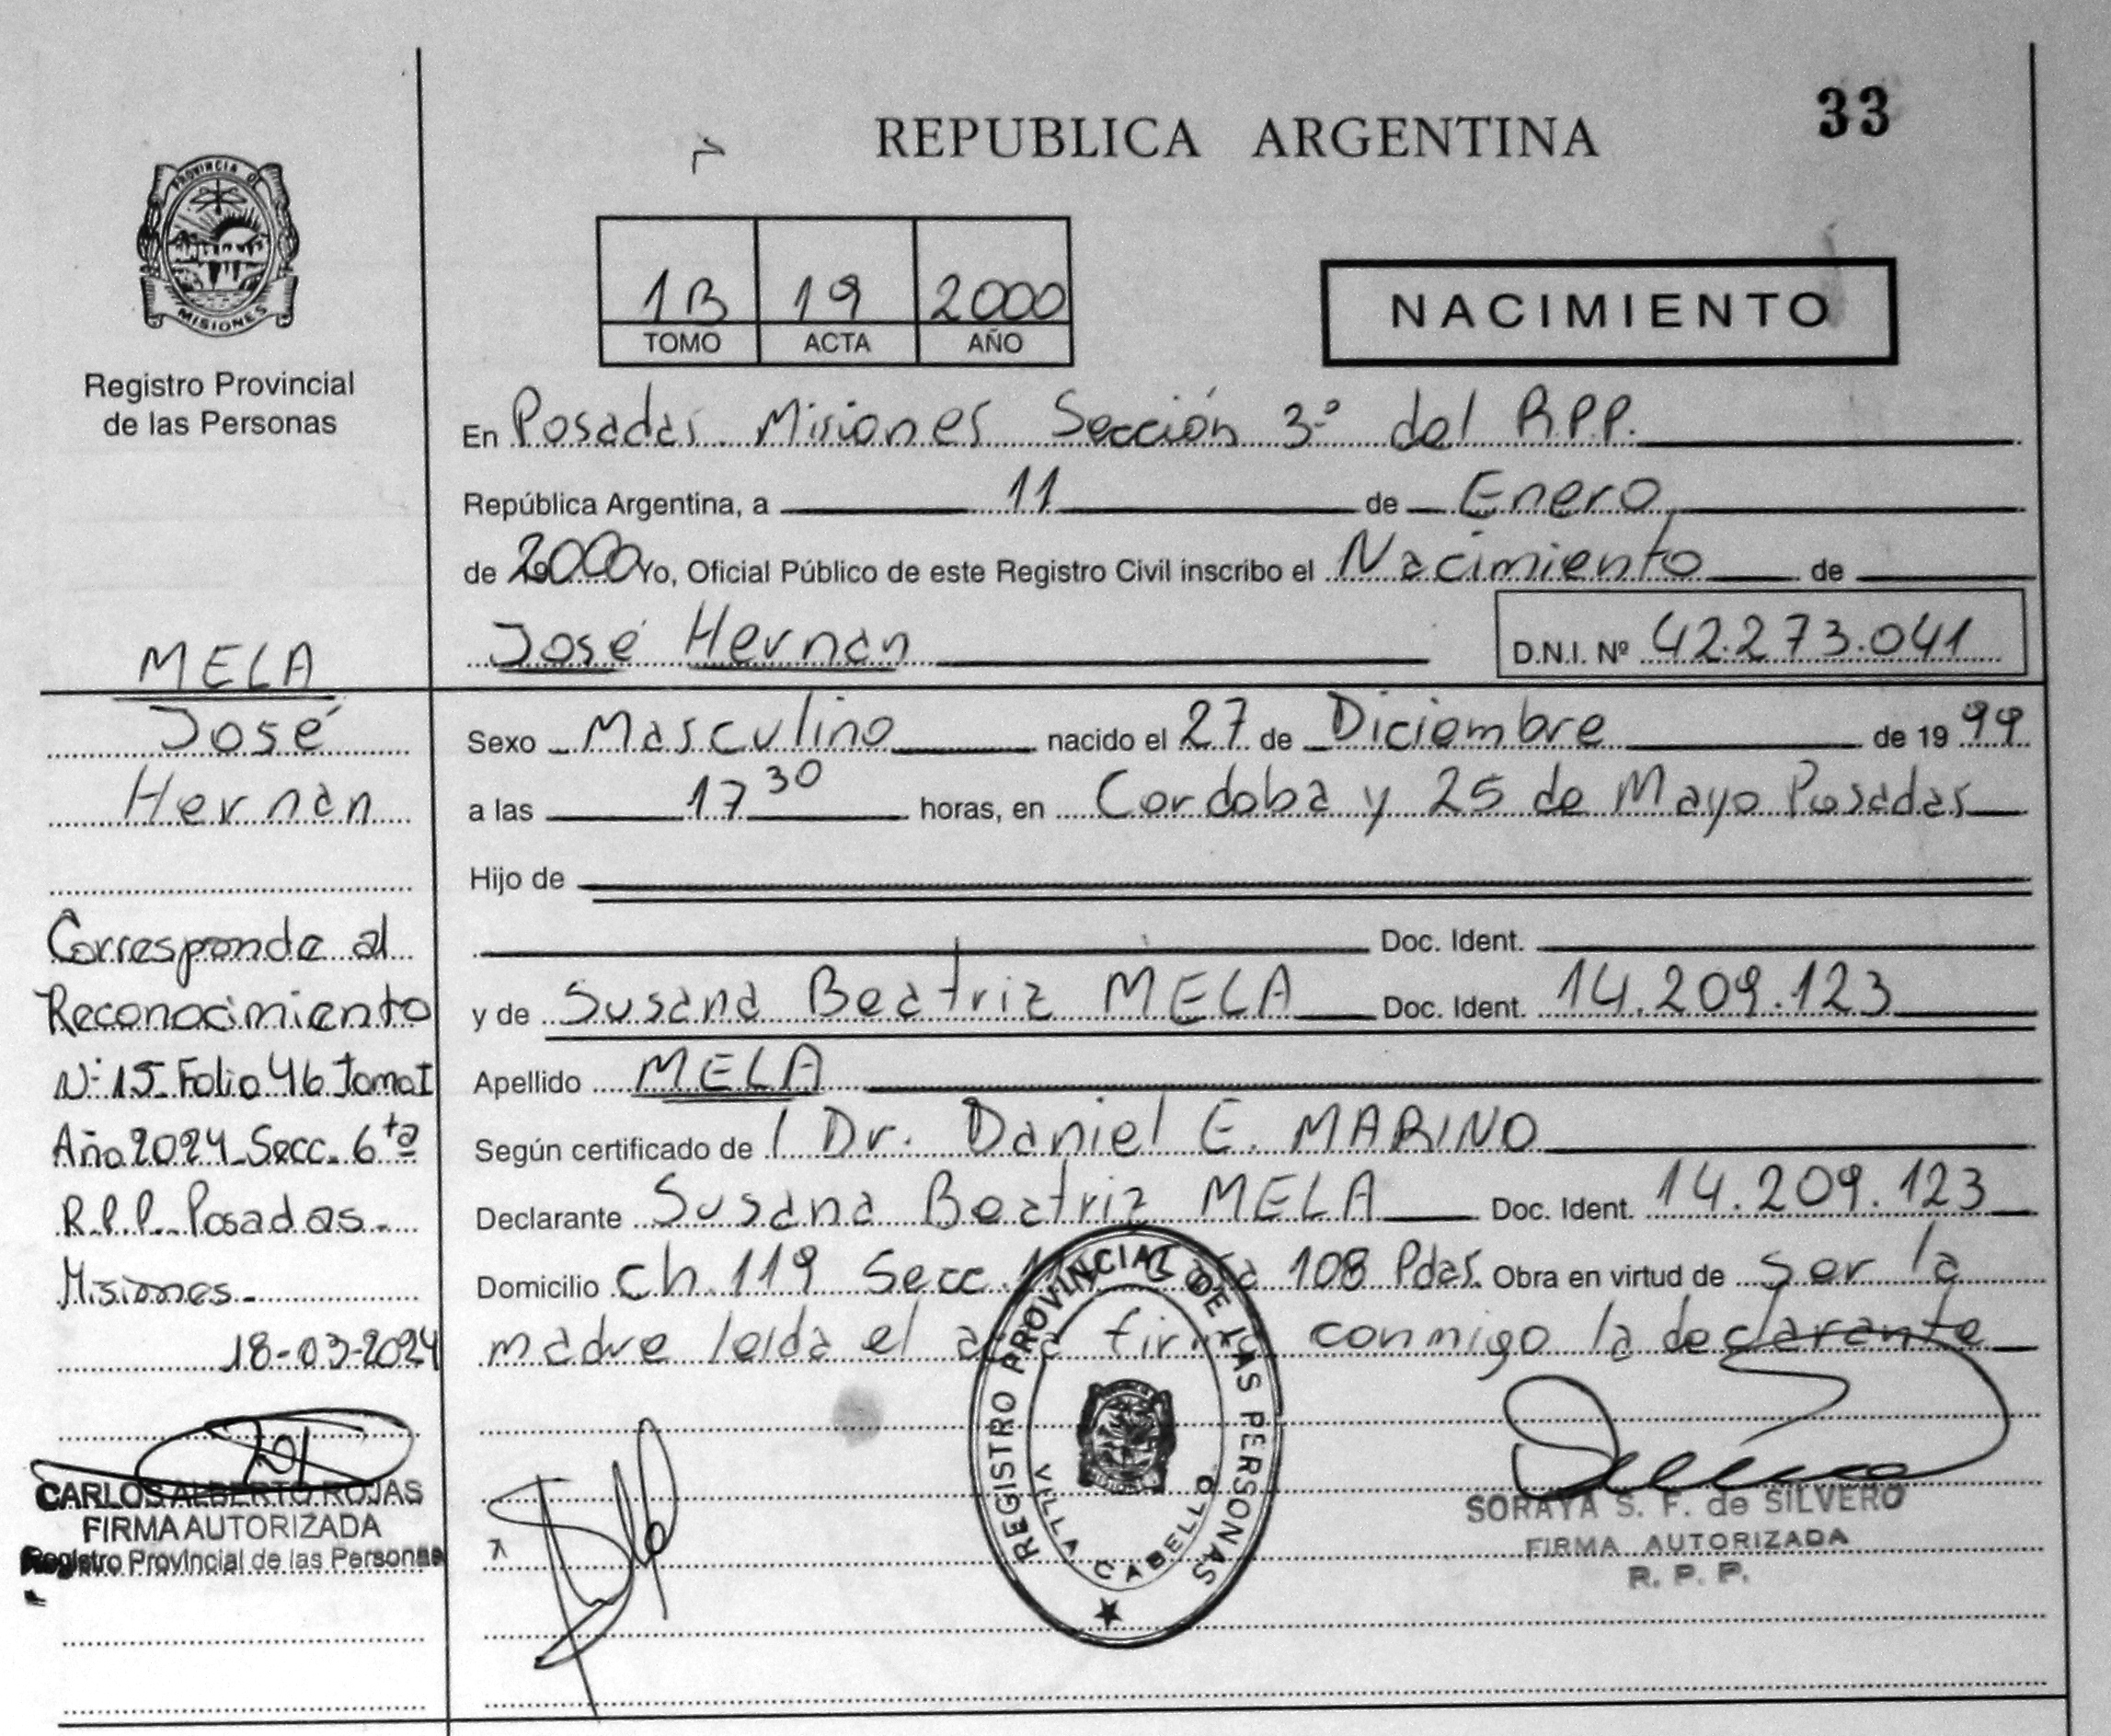 REPUBLICA ARGENTINA
33
PROVINCIA DE
MISIONES
Registro Provincial
de las Personas
1B 19 2000
TOMO ACTA AÑO
NACIMIENTO
En Posadas Misiones Sección 3º del R.P.P.
República Argentina, a 11 de Enero
de 2000 Yo, Oficial Público de este Registro Civil inscribo el Nacimiento de
José Hernán
D.N.I. Nº 42.273.041
Sexo Masculino nacido el 27 de Diciembre de 1999
a las 17 30 horas, en Cordoba y 25 de Mayo Posadas
Hijo de
Doc. Ident.
y de Susana Beatriz MELA Doc. Ident. 14.209.123
Apellido MELA
Según certificado de l Dr. Daniel E. MARINO
Declarante Susana Beatriz MELA Doc. Ident. 14.209.123
Domicilio ch. 119 Secc. 108 Pdas. Obra en virtud de ser la
madre leida el acta firma conmigo la declarante
MELA
José
Hernán
Corresponde al
Reconocimiento
Nº 15 Folio 46 Tomo I
Año 2024 Secc. 6ta
R.P.P. Posadas.
Misiones.
18-03-2024
CARLOS ALBERTO ROJAS
FIRMA AUTORIZADA
Registro Provincial de las Personas
REGISTRO PROVINCIAL DE LAS PERSONAS
VILLA CABELLO
SORAYA S. F. de SILVERO
FIRMA AUTORIZADA
R. P. P.